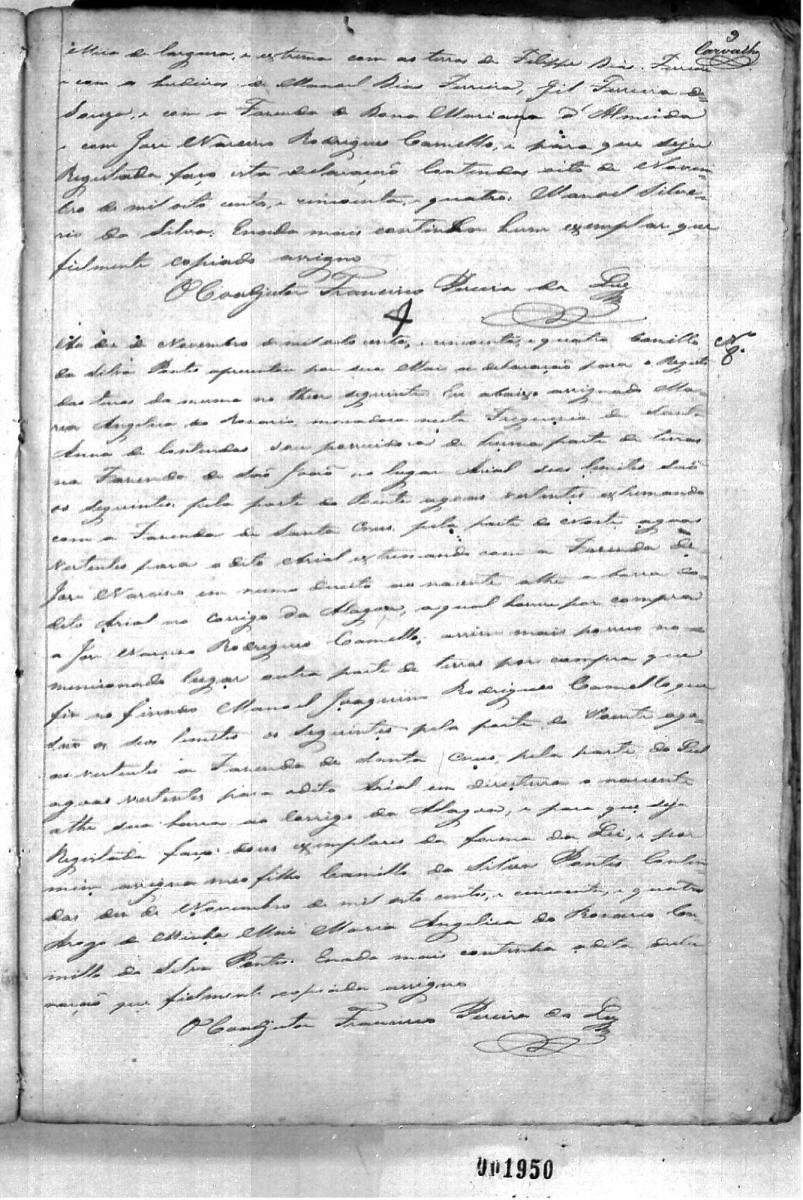 9
Carvalho
Meia de largura, e extrema com as terras de Filippe Dias Ferreira
e com os herdeiros de Manoel Dias Ferreira, Gil Ferreira de
Souza, e com a Fazenda de Dona Marianna d'Almeida
e com José Narcizo Rodrigues Camello, e para que seja
Registada faço esta declaração Contendas oito de Novem-
bro de mil oito centos, e cincoenta, e quatro. Manoel Silve-
rio da Silva. E nada mais continha hum exemplar que
fielmente copiado assigno
O Coadjutor Francisco Pereira da Luz
Nº
8.
de Novembro de mil oito centos, e cincoenta, e quatro Camillo
da Silva Pontes apresentou por sua Mai a declaração para o Registo
das terras da mesma no theor seguinte. Eu abaixo assignado Ma-
ria Angelica do Rosario moradora nesta Freguesia de Santa
Anna de Contendas sou possuidora de huma parte de terras
na Fazenda de São João no lugar Arial seus limites são
os seguintes pela parte do Poente agoas vertentes extremando
com a Fazenda de Santa Crus, pela parte do Norte agoas
vertentes para o dito Arial extremando com a Fazenda de
José Narciso em rumo direito ao nacente athe a barra do
dito Arial no corrigo da Alagoa, a qual houve por compra
a José Narciso Rodrigues Camello, assim mais possuo no
mencionado lugar outra parte de terras por compra que
fiz ao finado Manoel Joaquim Rodrigues Camello que
são os seus limites os seguintes pela parte do Poente ago-
as vertentes a Fazenda de Santa Crus, pela parte do Sul
agoas vertentes para o dito Arial em direitura o nascente
athe sua barra ao Corrigo da Alagoa, e para que seja
Registada faço dous exemplares da forma da Lei, e por
mim assigna meo filho Camillo da Silva Pontes Conten-
das des de Novembro de mil oito centos, e cincoenta, e quatro
Arogo de Minha Mai Maria Angelica do Rosario Ca-
millo da Silva Pontes. E nada mais continha a dita decla-
ração que fielmente copiada assigno
O Coadjutor Francisco Pereira da Luz
001950